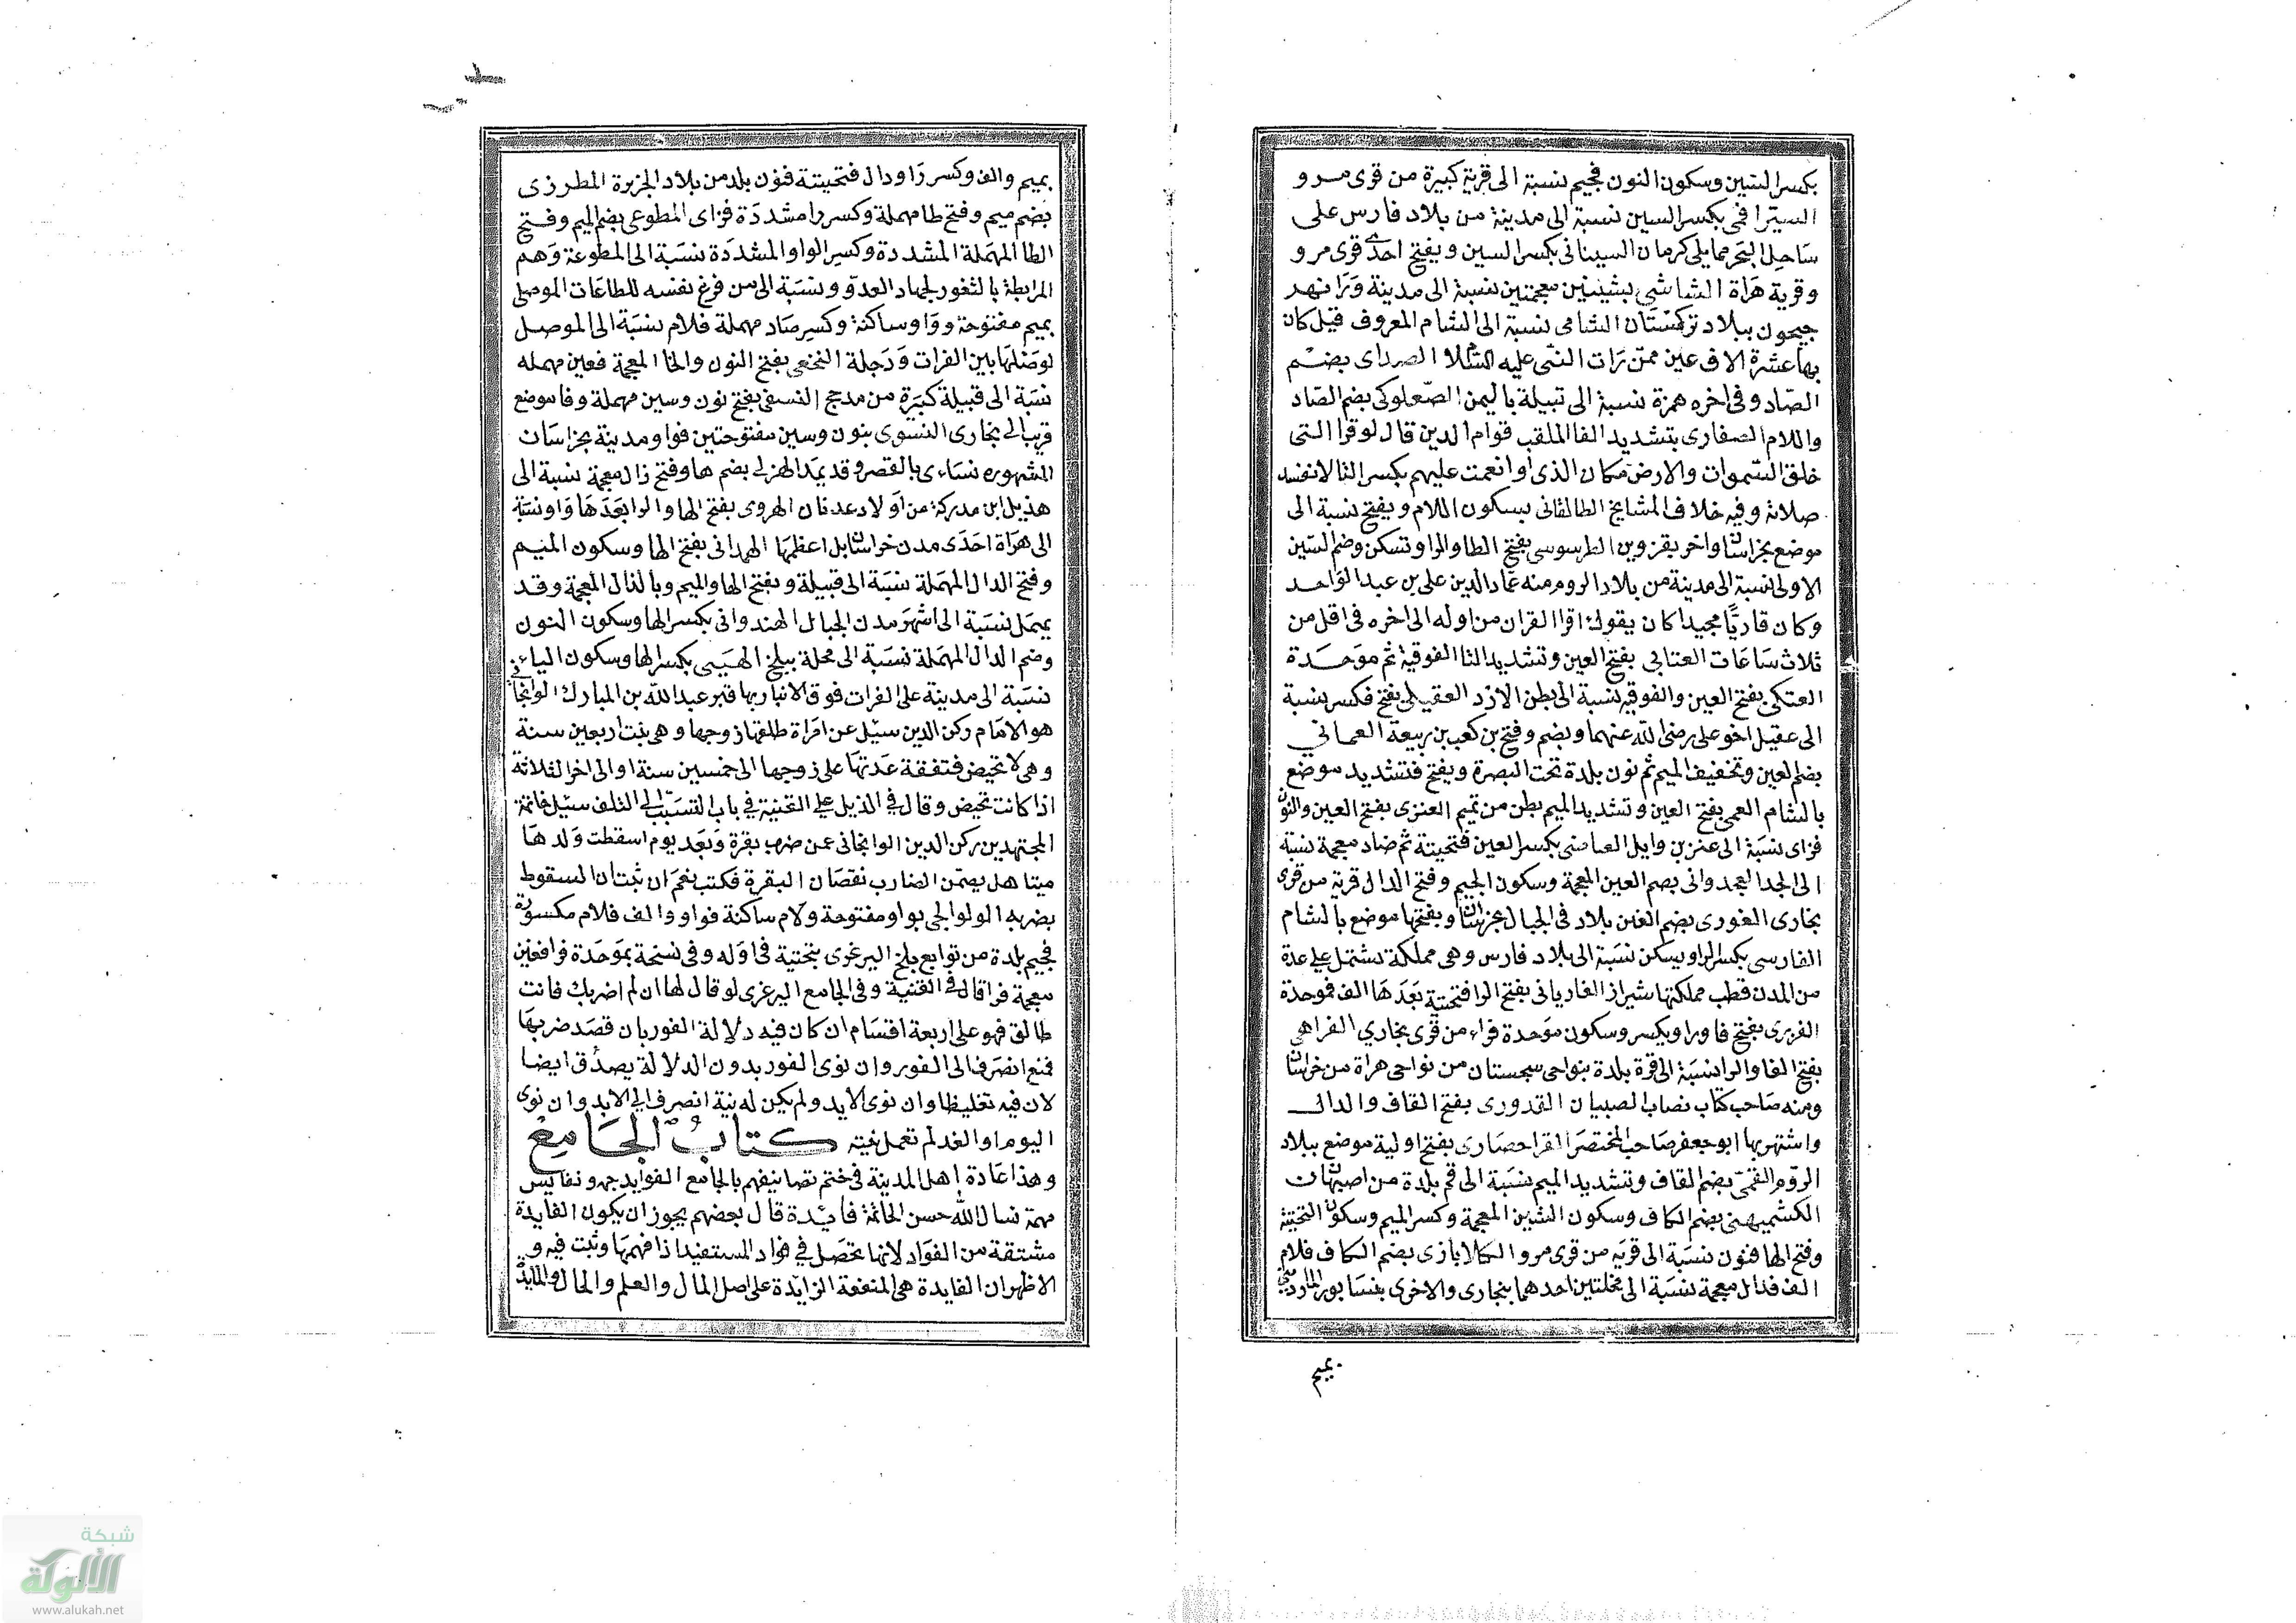 بكسر السين وسكون النون فجيم نسبة الى قرية كبيرة من قوى مرو و
السيرافى بكسر السين نسبة الى مدينة من بلاد فارس على
ساحل البحر مما يلى كرمان السينانى بكسر السين وبفتح احدى قوى مرو
وقرية هراة الشاشي بشينين معجمتين نسبة الى مدينة ورا نهر
جيحون ببلاد تركستان الشامى نسبة الى الشام المعروف قيل كان
بها عشرة الاف عين ممن رات النبى عليه السلا الصداى بضم
الصاد وفى اخره همزة نسبة الى قبيلة باليمن الصعلوكى بضم الصاد
واللام الصفارى بتشديد الفا الملقب قوام الدين قال لو قرا التى
خلق السموات والارض مكان الذى او انعمت عليهم بكسر التا لا تفسد
صلاته وفيه خلاف المشايخ الطالقانى بسكون اللام وبفتح نسبة الى
موضع بخراسان واخر بقزوين الطرسوسى بفتح الطا والرا وتسكن وضم السين
الاولى نسبة الى مدينة من بلاد الروم منه عماد الدين على بن عبد الواحد
وكان قاريا مجيدا كان يقول اقرا القران من اوله الى اخره فى اقل من
ثلاث ساعات العتابى بفتح العين وتشديد التا الفوقية ثم موحدة
العتكى بفتح العين والفوقية نسبة الى بطن الازد العقيلى بفتح فكسر نسبة
الى عقيل اخو على رضى الله عنهما وبضم وفتح بن كعب بن ربيعة العمانى
بضم العين وتخفيف الميم ثم نون بلدة تحت البصرة وبفتح فتشديد موضع
بالشام العمى بفتح العين وتشديد الميم بطن من تميم العنزى بفتح العين والنون
فزاى نسبة الى عنز بن وايل العياضى بكسر العين فتحيتة ثم ضاد معجمة نسبة
الى الجد الغجدوانى بضم الغين المعجمة وسكون الجيم وفتح الدال قرية من قرى
بخارى الغورى بضم الغين بلاد فى الجبال بخراسان وبفتحها موضع بالشام
الفارسى بكسر الرا ويسكن نسبة الى بلاد فارس وهى مملكة تشتمل على عدة
من المدن قطب مملكتها شيراز الفاريابى بفتح الرا فتحيتة بعدها الف فموحدة
الفربرى بفتح فا ورا ويكسر وسكون موحدة فراء من قرى بخاري الفراهي
بفتح الفا والرا نسبة الى فرة بلدة بنواحى سجستان من نواحى هراة من خراسان
ومنه صاحب كتاب نصاب الصبيان القدورى بفتح القاف والدال
واشتهر بها ابو جعفر صاحب المختصر القراحصارى بفتح اولية موضع ببلاد
الروم القمى بضم القاف وتشديد الميم نسبة الى قم بلدة من اصبهان
الكشميهنى بضم الكاف وسكون الشين المعجمة وكسر الميم وسكون التحيتة
وفتح الها فنون نسبة الى قرية من قرى مرو الكلاباذى بضم الكاف فلام
الف فدال معجمة نسبة الى محلتين احدهما بخارى والاخرى بنسابور الماردينى
بميم
بميم والف وكسر را ودال فتحيتة فنون بلد من بلاد الجزيرة المطرزى
بضم ميم وفتح طا مهملة وكسر را مشددة فزاى المطوعى بضم الميم وفتح
الطا المهملة المشددة وكسر الواو المشددة نسبة الى المطوعة وهم
المرابطة بالثغور لجهاد العدو ونسبة الى من فرغ نفسه للطاعات الموصلى
بميم مفتوحة وواو ساكنة وكسر صاد مهملة فلام نسبة الى الموصل
لوصلها بين الفرات ودجلة النخعى بفتح النون والخا المعجمة فعين مهمله
نسبة الى قبيلة كبيرة من مدحج النسفى بفتح نون وسين مهملة وفا موضع
قريب الى بخارى النسوى بنون وسين مفتوحتين فواو مدينة بخراسان
المشهوره نساءى بالقصر وقد يمد الهزلى بضم ها وفتح ذال معجمة نسبة الى
هذيل ابن مدركة من اولاد عدنان الهروى بفتح الها والرا بعدها واو نسبة
الى هراة احدى مدن خراسان بل اعظمها الهمدانى بفتح الها وسكون الميم
وفتح الدال المهملة نسبة الى قبيلة وبفتح الها والميم وبالذال المعجمة وقد
يهمل نسبة الى اشهر مدن الجبال الهندوانى بكسر الها وسكون النون
وضم الدال المهملة نسبة الى محلة ببلخ الهيتى بكسر الها وسكون الياء
نسبة الى مدينة على الفرات فوق الانبار بها قبر عبد الله بن المبارك الوانجانى
هو الامام ركن الدين سئل عن امراة طلقها زوجها وهى بنت اربعين سنة
وهى لا تحيض فنفقة عدتها على زوجها الى خمسين سنة او الى اخر الثلاثة
اذا كانت تحيض وقال في الذيل على القنية في باب التسبب الى التلف سئل خاتمة
المجتهدين ركن الدين الوانجانى عمن ضرب بقرة وبعد يوم اسقطت ولدها
ميتا هل يضمن الضارب نقصان البقرة فكتب نعم ان ثبت ان السقوط
بضربه الولوالجى بواو مفتوحة ولام ساكنة فواو والف فلام مكسورة
فجيم بلدة من توابع بلخ اليرغرى بتحتية فى اوله وفى نسخة بموحدة فرا فغين
معجمة فرا قال فى القنية وفى الجامع اليرغرى لو قال لها ان لم اضربك فانت
طالق فهو على اربعة اقسام ان كان فيه دلالة الفور بان قصد ضربها
فمنع انصرف الى الفور وان نوى الفور بدون الدلالة يصدق ايضا
لان فيه تغليظا وان نوى الابد ولم يكن له نية انصرف الى الابد وان نوى
اليوم او الغد لم تعمل نيته كتاب الجامع
وهذا عادة اهل المدينة فى ختم تصانيفهم بالجامع الفوايد جمه ونفايس
مهمة نسال الله حسن الخاتمة فايدة قال بعضهم يجوز ان يكون الفايدة
مشتقة من الفواد لانها تحصل في فواد المستفيد اذا فهمها وثبت فيه و
الاظهر ان الفايدة هى المنفعة الزايدة على اصل المال والعلم والحال
شبكة
الألوكة
www.alukah.net